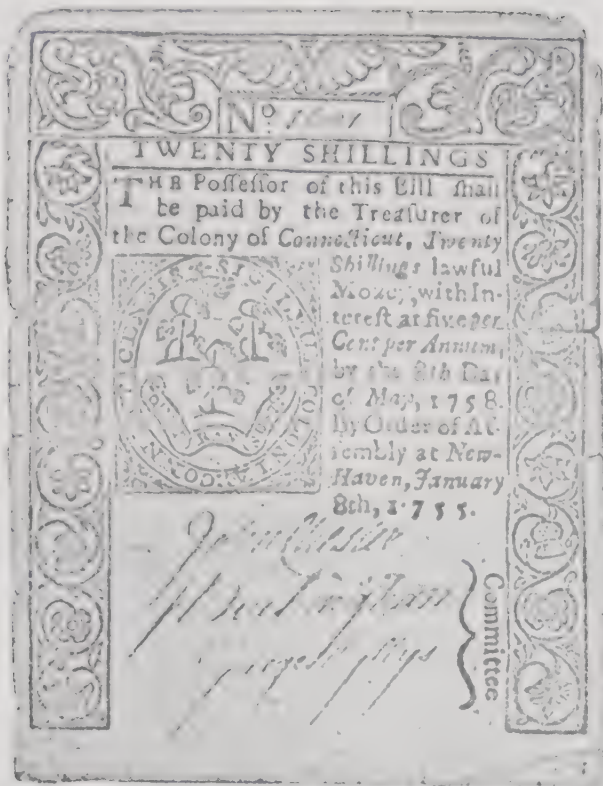 No.
TWENTY SHILLINGS
THE Poſſeſſor of this Bill ſhall
be paid by the Treaſurer of
the Colony of Connecticut, Twenty
Shillings lawful
Money, with In-
tereſt at five per
Cent per Annum,
by the 8th Day
of May, 1758.
By Order of Aſ-
ſembly at New-
Haven, January
8th, 1755.
SIGILLUM COLONIÆ CONNECTICENSIS
QUI TRANS SUST
John Chester
Committee